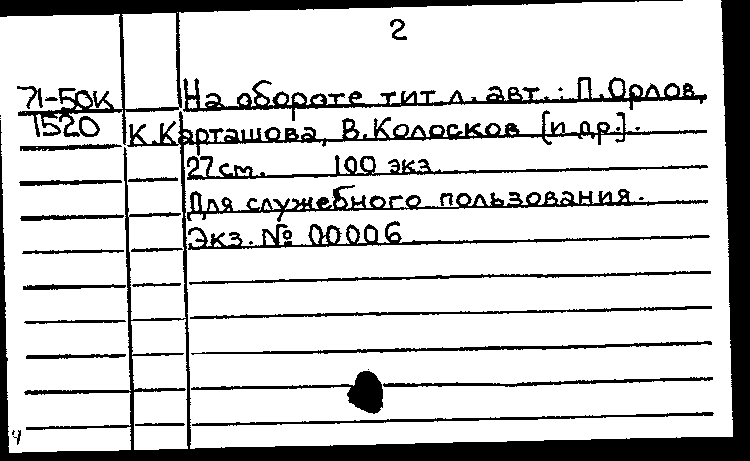 2
71-50к На обороте тит.л. авт.: П.Орлов,
1520 К.Карташова, В.Колосков [и др.].
27см. 100 экз.
Для служебного пользования.
Экз. № 00006
4